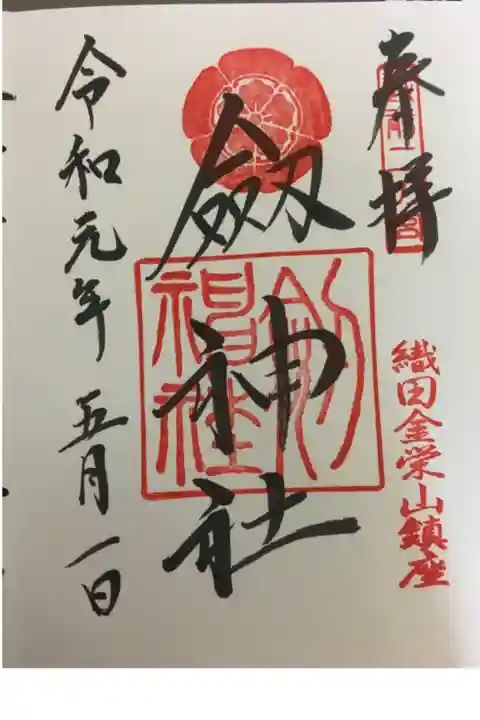 奉拝
織田金栄山鎮座
劔神社
劔神社
令和元年 五月一日